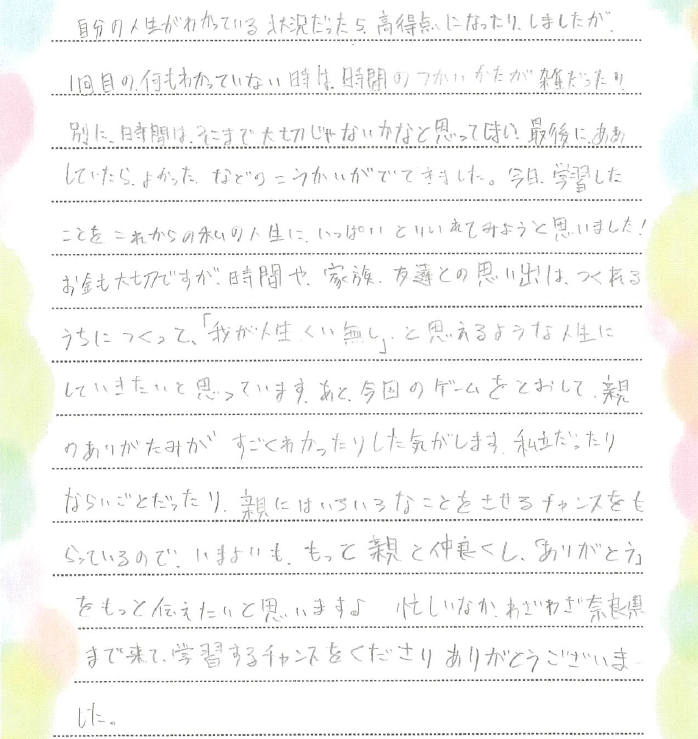 自分の人生がわかっている状況だったら、高得点になったり、しましたが、
1回目の、何もわかっていない時は、時間のつかいかたが雑だったり、
別に、時間は、そこまで大切じゃないかなと思ってしまい、最後に、ああ
していたら、よかった、などのこうかいがでてきました。今日、学習した
ことをこれからの私の人生に、いっぱいとりいれてみようと思いました!
お金も大切ですが、時間や、家族、友達との思い出は、つくれる
うちにつくって、「我が人生くい無し」と思えるような人生に
していきたいと思っています。あと、今回のゲームをとおして、親
のありがたみがすごくわかったりした気がします。私立だったり
ならいごとだったり、親にはいろいろなことをさせるチャンスをも
らっているので、いまよりも、もっと親と仲良くし、「ありがとう」
をもっと伝えたいと思います♪ 忙しいなか、わざわざ奈良県
まで来て、学習するチャンスをくださりありがとうございま
した。